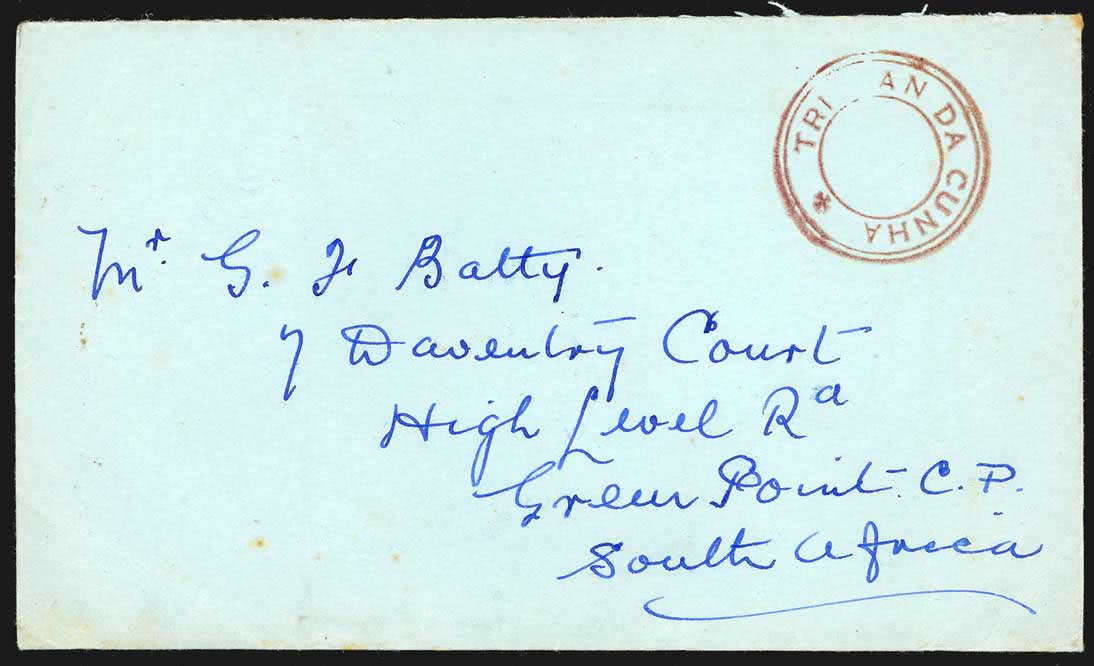 TRI AN DA CUNHA *
Mr. G. F Batty.
7 Daventry Court
High Level Rd
Green Point. C.P.
South Africa